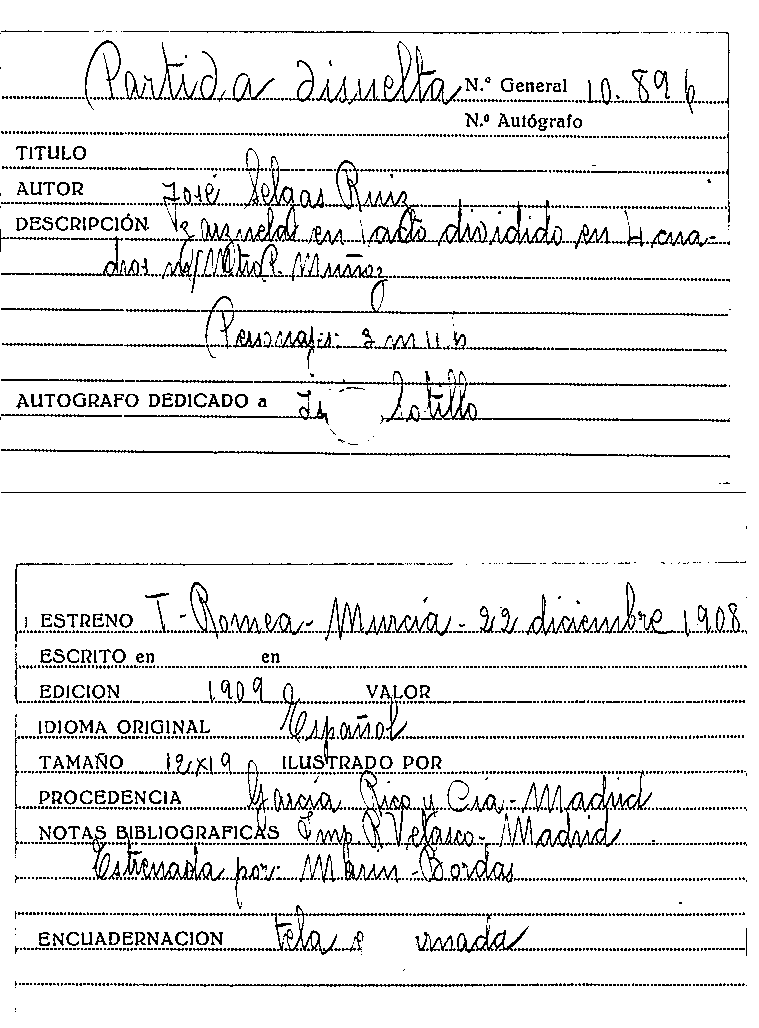 Partida disuelta N.º General 10.896
N.º Autógrafo
TITULO
AUTOR José Selgas Ruiz
DESCRIPCIÓN Zarzuela en 1 acto dividido en 4 cua-
dros Mtro P. Muñoz
Personajes: 3 m 11 h
AUTOGRAFO DEDICADO a Sotillo
ESTRENO T-Romea-Murcia-22 diciembre 1908
ESCRITO en en
EDICION 1909 VALOR
IDIOMA ORIGINAL Español
TAMAÑO 12x19 ILUSTRADO POR
PROCEDENCIA García Rico y Cía-Madrid
NOTAS BIBLIOGRAFICAS Imp. R. Velasco-Madrid
Estrenada por: Marin-Bordas
ENCUADERNACION tela